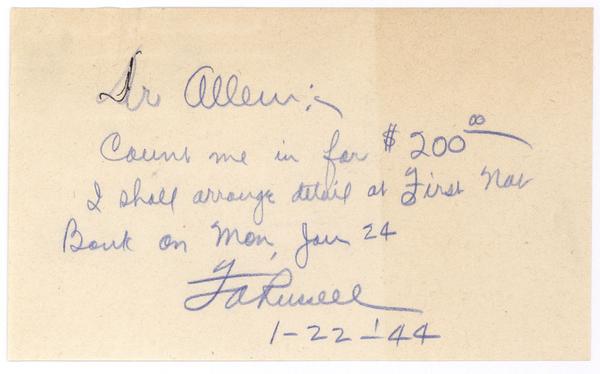 Dr Allen:-
Count me in for $200.00
I shall arrange detail at First Nat
Bank on Mon, Jan 24
F A Russell
1-22-'44